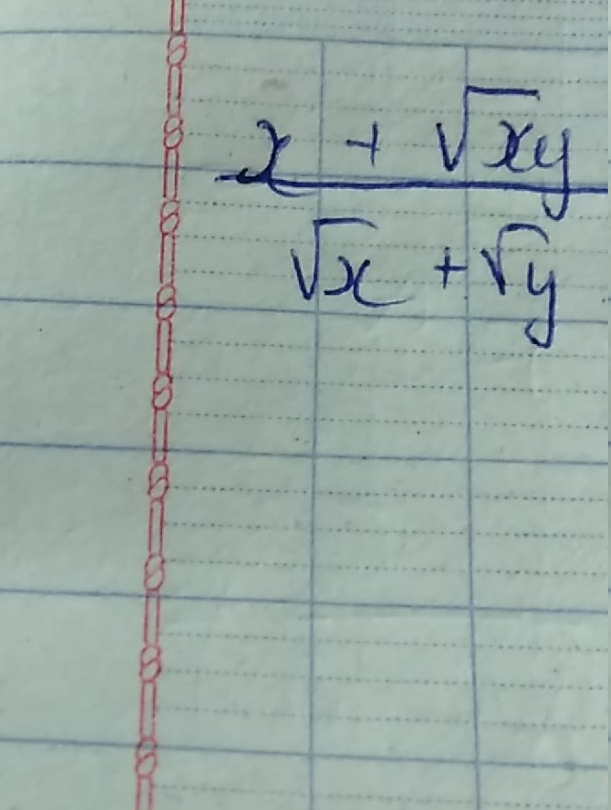 x + √xy
√x + √y